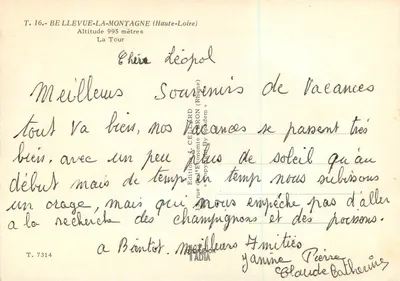 T. 16.- BELLEVUE-LA-MONTAGNE (Haute-Loire)
Altitude 995 mètres
La Tour
Chère Léopol
Meilleurs Souvenirs de Vacances
tout va bien, nos vacances se passent très
bien. avec un peu plus de soleil qu'au
début mais de temps en temps nous subissons
un orage, mais qui nous empêche pas d'aller
a la recherche des champignons et des poissons.
a Bientot. meilleurs Amitiés
Janine Pierre
Claude Catherine
T. 7314